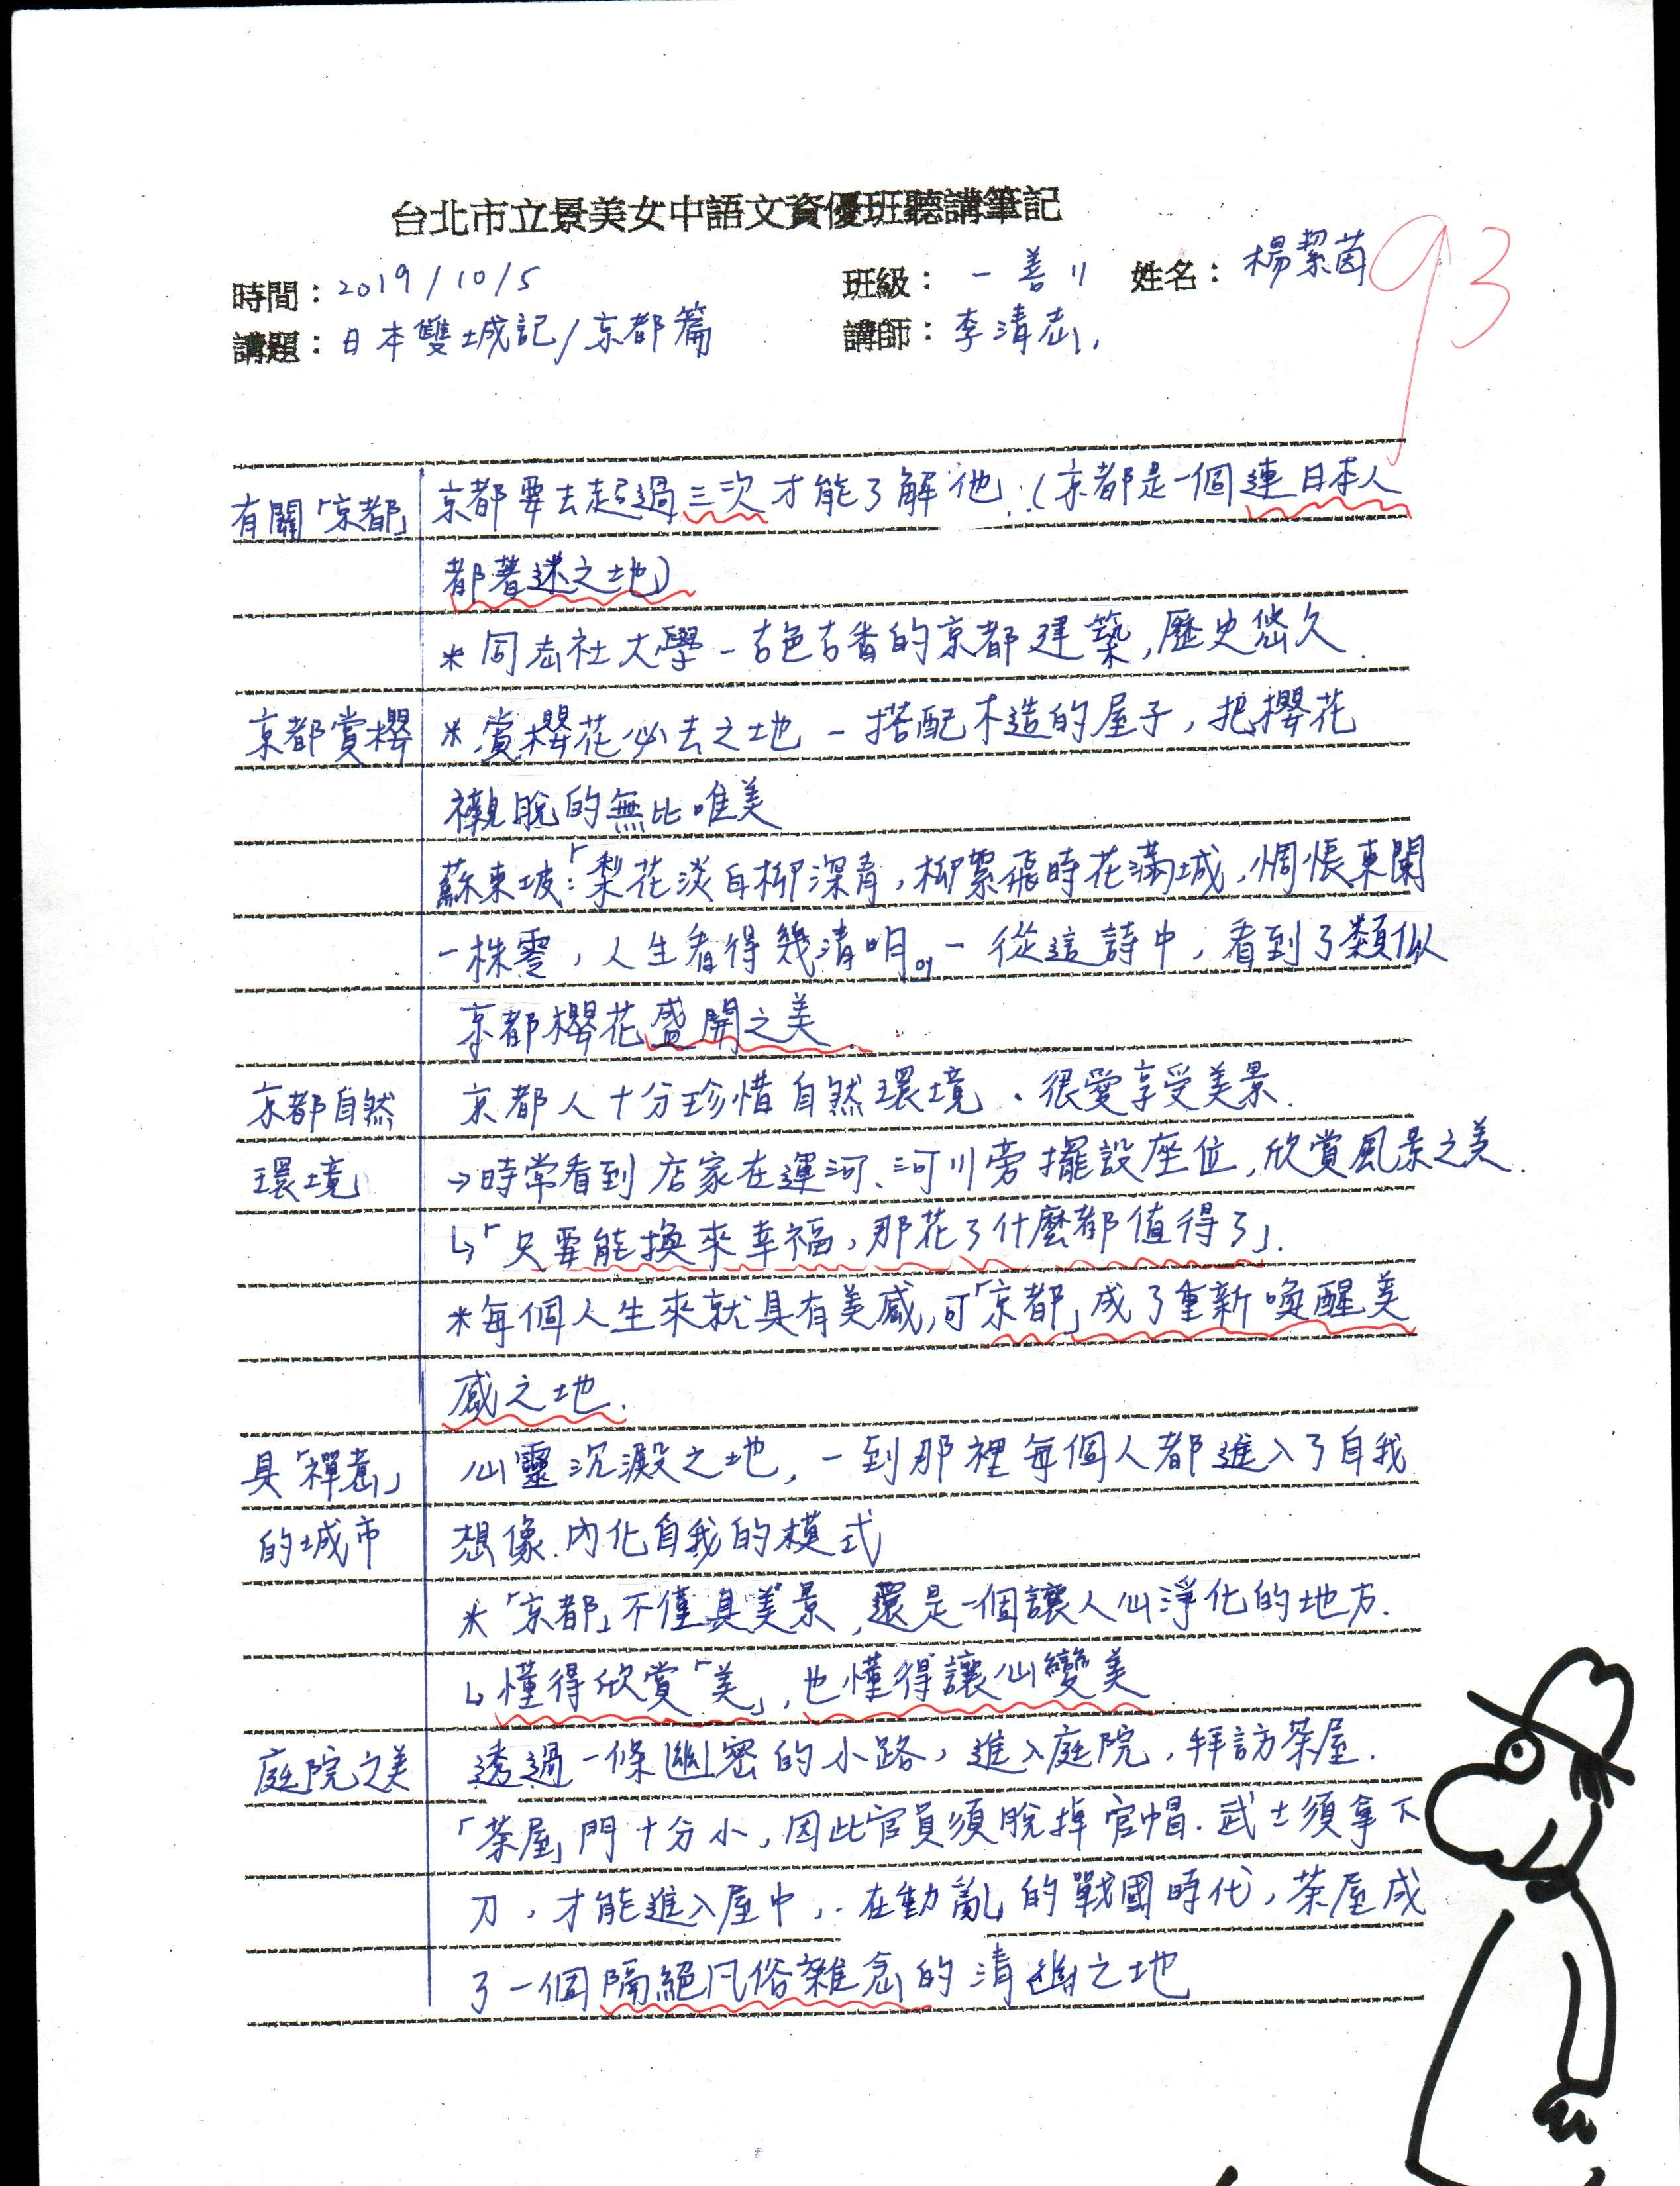 台北市立景美女中語文資優班聽講筆記
時間：2019/10/5 班級：一善 11 姓名：楊絜茵
93
講題：日本雙城記/京都篇 講師：李清志
有關「京都」 京都要去超過三次才能了解他.（京都是一個連日本人
都著迷之地）
＊同志社大學－古色古香的京都建築,歷史悠久.
京都賞櫻 ＊賞櫻花必去之地－搭配木造的屋子，把櫻花
襯脫的無比唯美
蘇東坡：「梨花淡白柳深青，柳絮飛時花滿城，惆悵東闌
一株雪，人生看得幾清明。」－從這詩中，看到了類似
京都櫻花盛開之美.
京都自然 京都人十分珍惜自然環境、很愛享受美景.
環境 →時常看到店家在運河、河川旁擺設座位,欣賞風景之美.
↳「只要能換來幸福，那花了什麼都值得了」.
＊每個人生來就具有美感,可「京都」成了重新喚醒美
感之地.
具「禪意」 心靈沉澱之地，一到那裡每個人都進入了自我
的城市 想像.內化自我的模式
＊「京都」不僅具美景,還是一個讓人心淨化的地方.
↳懂得欣賞「美」，也懂得讓心變美
庭院之美 透過一條幽密的小路，進入庭院，拜訪茶屋.
「茶屋」門十分小，因此官員須脫掉官帽.武士須拿下
刀，才能進入屋中，在動亂的戰國時代，茶屋成
了一個隔絕凡俗雜念的清幽之地